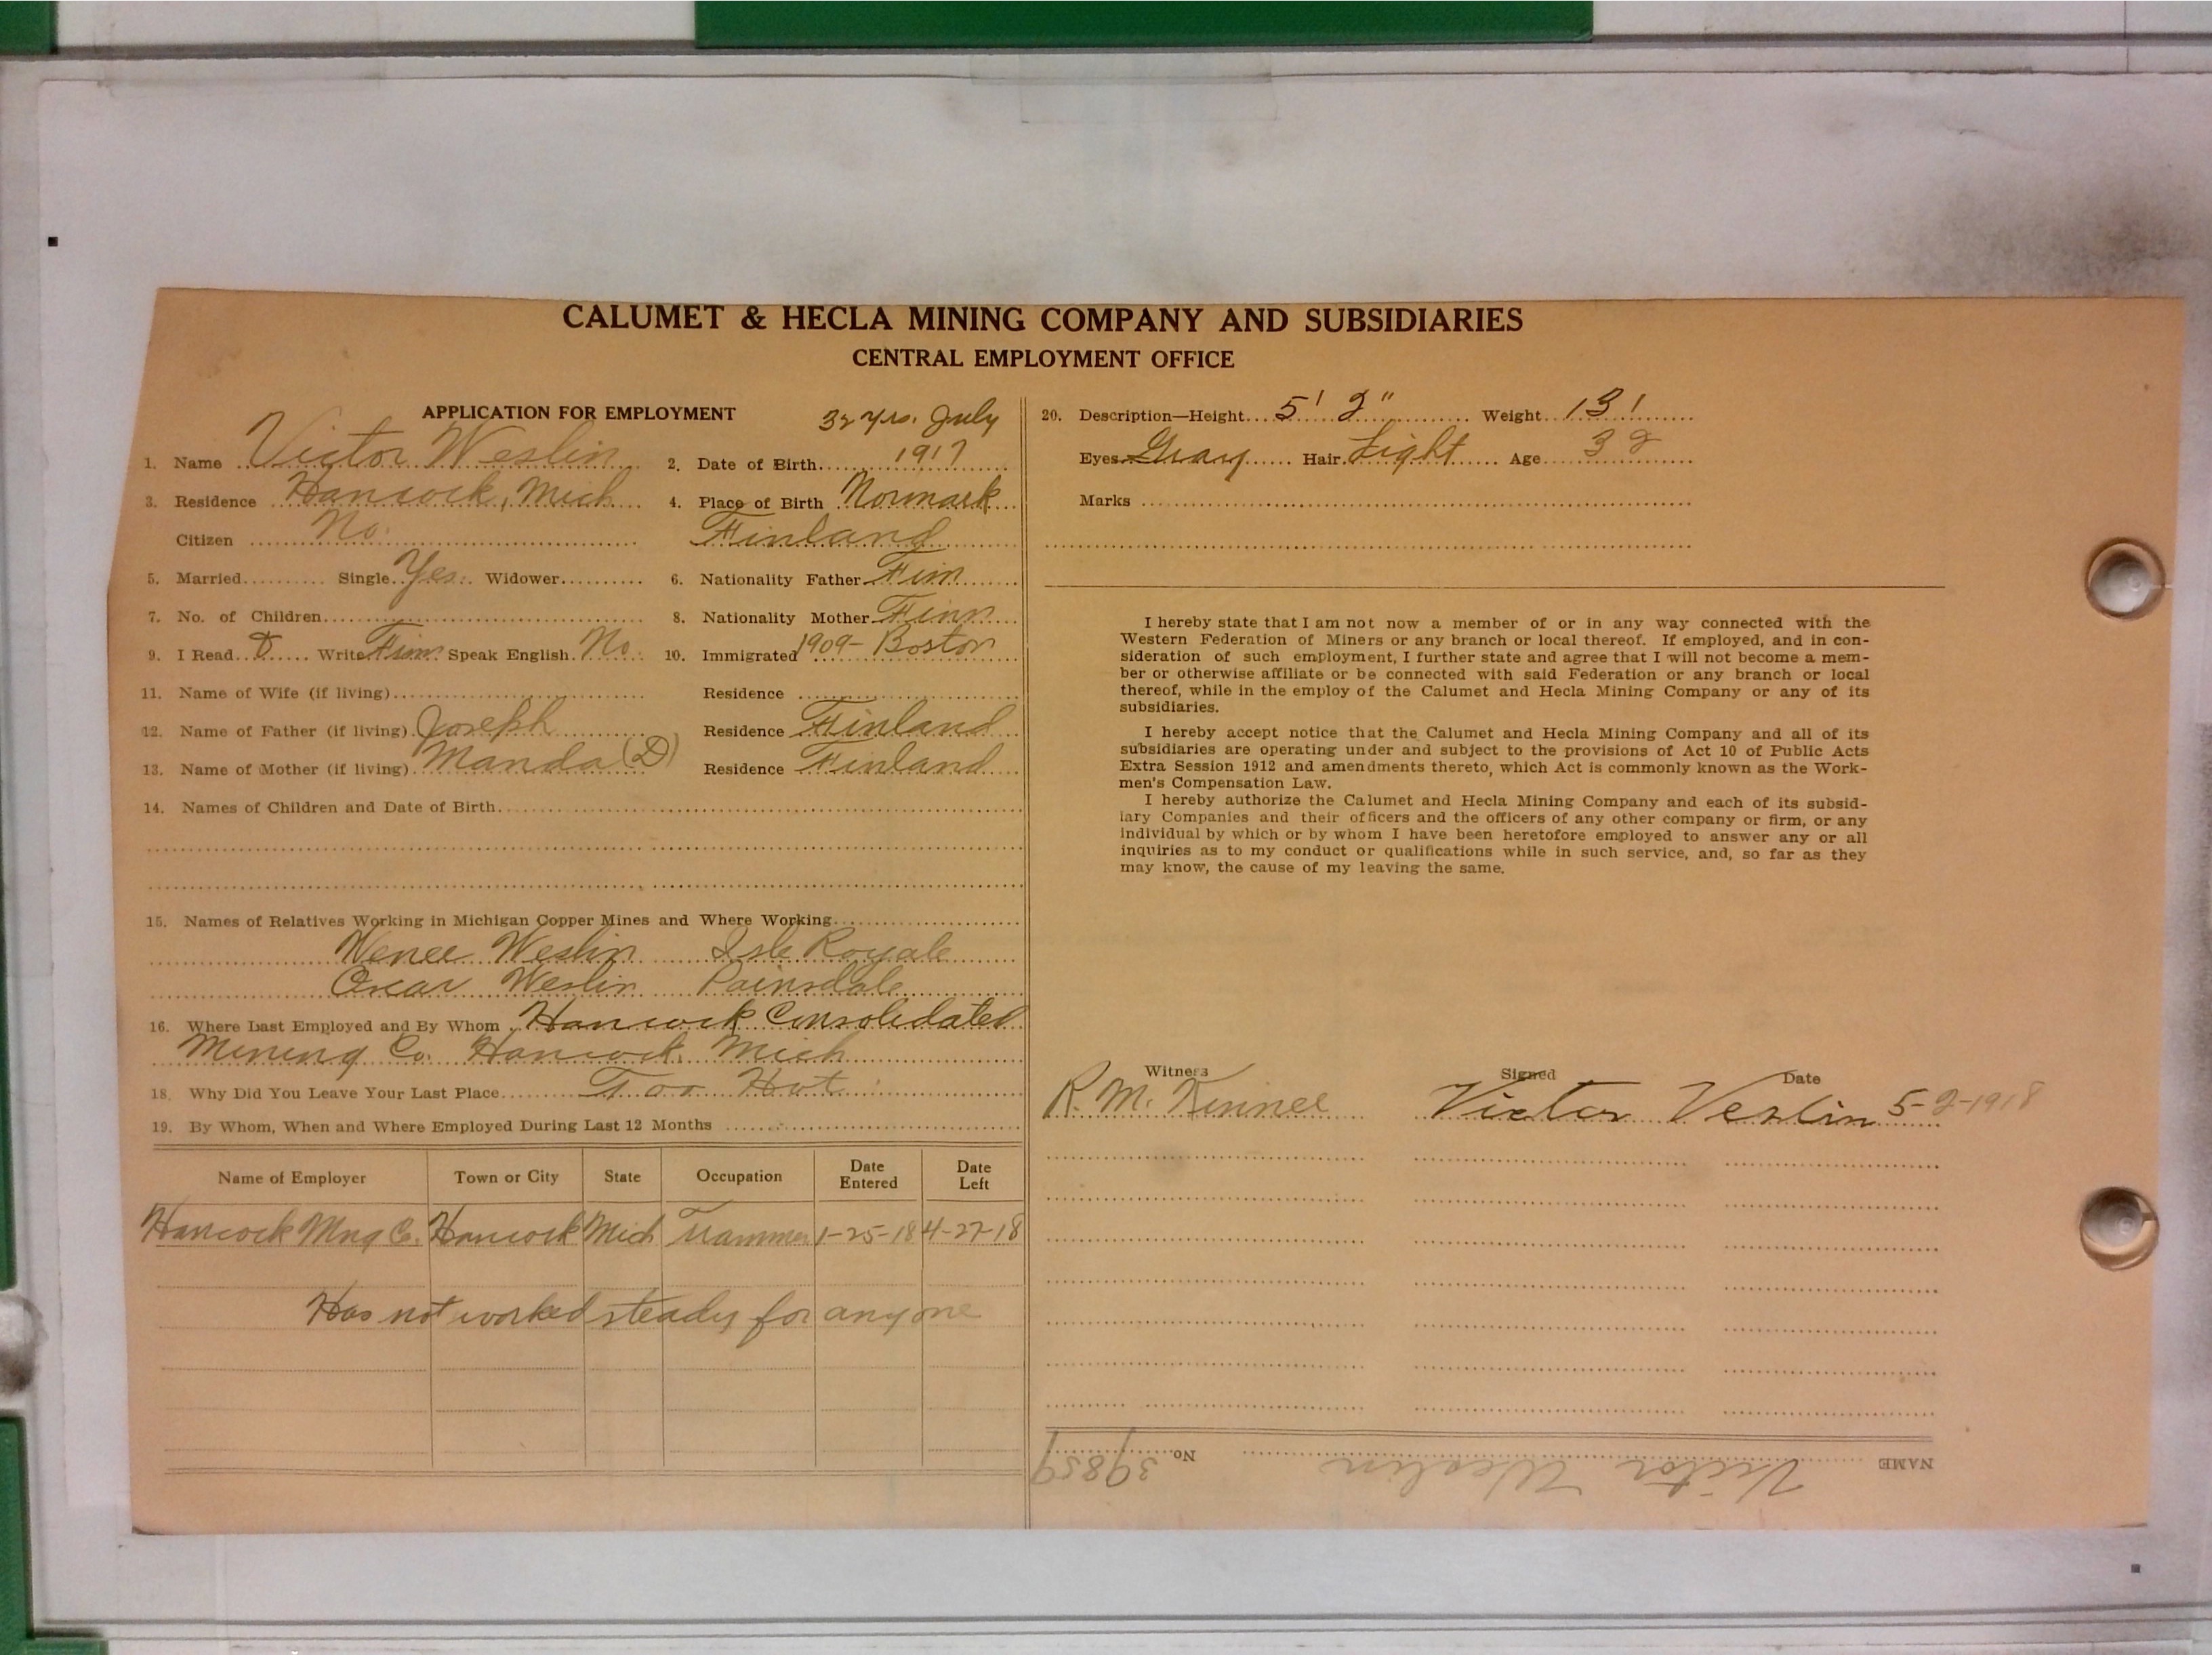 CALUMET & HECLA MINING COMPANY AND SUBSIDIARIES
CENTRAL EMPLOYMENT OFFICE
APPLICATION FOR EMPLOYMENT
32 yrs. July
1. Name Victor Weslin 2. Date of Birth 1917
3. Residence Hancock, Mich 4. Place of Birth Normark
Citizen No. Finland
5. Married Single Yes. Widower 6. Nationality Father Finn
7. No. of Children 8. Nationality Mother Finn
9. I Read & Write Finn Speak English No. 10. Immigrated 1909- Boston
11. Name of Wife (if living) Residence
12. Name of Father (if living) Joseph Residence Finland
13. Name of Mother (if living) Manda (D) Residence Finland
14. Names of Children and Date of Birth
15. Names of Relatives Working in Michigan Copper Mines and Where Working
Weslin Isle Royale
Oscar Weslin Painsdale
16. Where Last Employed and By Whom Hancock Consolidated
Mining Co. Hancock. Mich
18. Why Did You Leave Your Last Place Too Hot
19. By Whom, When and Where Employed During Last 12 Months
Name of Employer Town or City State Occupation Date Entered Date Left
Hancock Mng Co. Hancock Mich Trammer 1-25-18 4-27-18
Has not worked steady for anyone
20. Description—Height 5' 2" Weight 131
Eyes Gray Hair Light Age 32
Marks
I hereby state that I am not now a member of or in any way connected with the
Western Federation of Miners or any branch or local thereof. If employed, and in con-
sideration of such employment, I further state and agree that I will not become a mem-
ber or otherwise affiliate or be connected with said Federation or any branch or local
thereof, while in the employ of the Calumet and Hecla Mining Company or any of its
subsidiaries.
I hereby accept notice that the Calumet and Hecla Mining Company and all of its
subsidiaries are operating under and subject to the provisions of Act 10 of Public Acts
Extra Session 1912 and amendments thereto, which Act is commonly known as the Work-
men's Compensation Law.
I hereby authorize the Calumet and Hecla Mining Company and each of its subsid-
iary Companies and their officers and the officers of any other company or firm, or any
individual by which or by whom I have been heretofore employed to answer any or all
inquiries as to my conduct or qualifications while in such service, and, so far as they
may know, the cause of my leaving the same.
Witness Signed Date
R. M. Kinnel Victor Veslin 5-2-1918
NAME Victor Weslin No. 39859